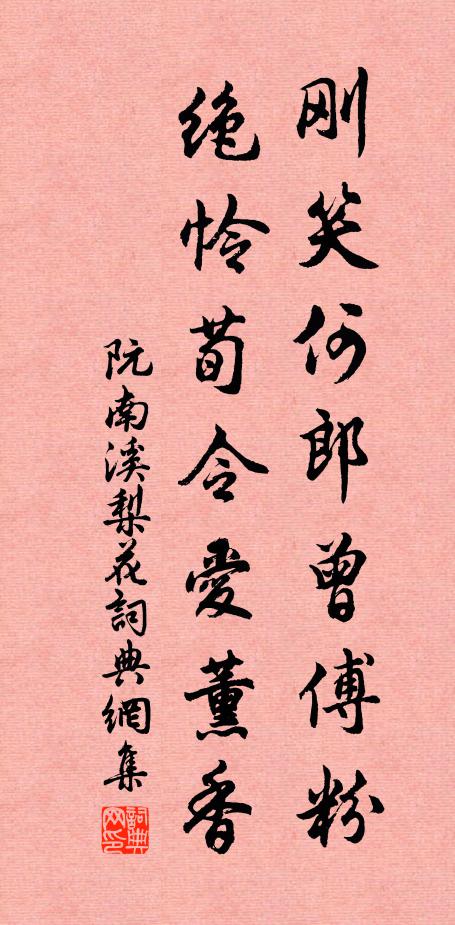 刚笑何郎曾傅粉
绝怜荀令爱薰香
阮南溪梨花詞典網集
詞典网印